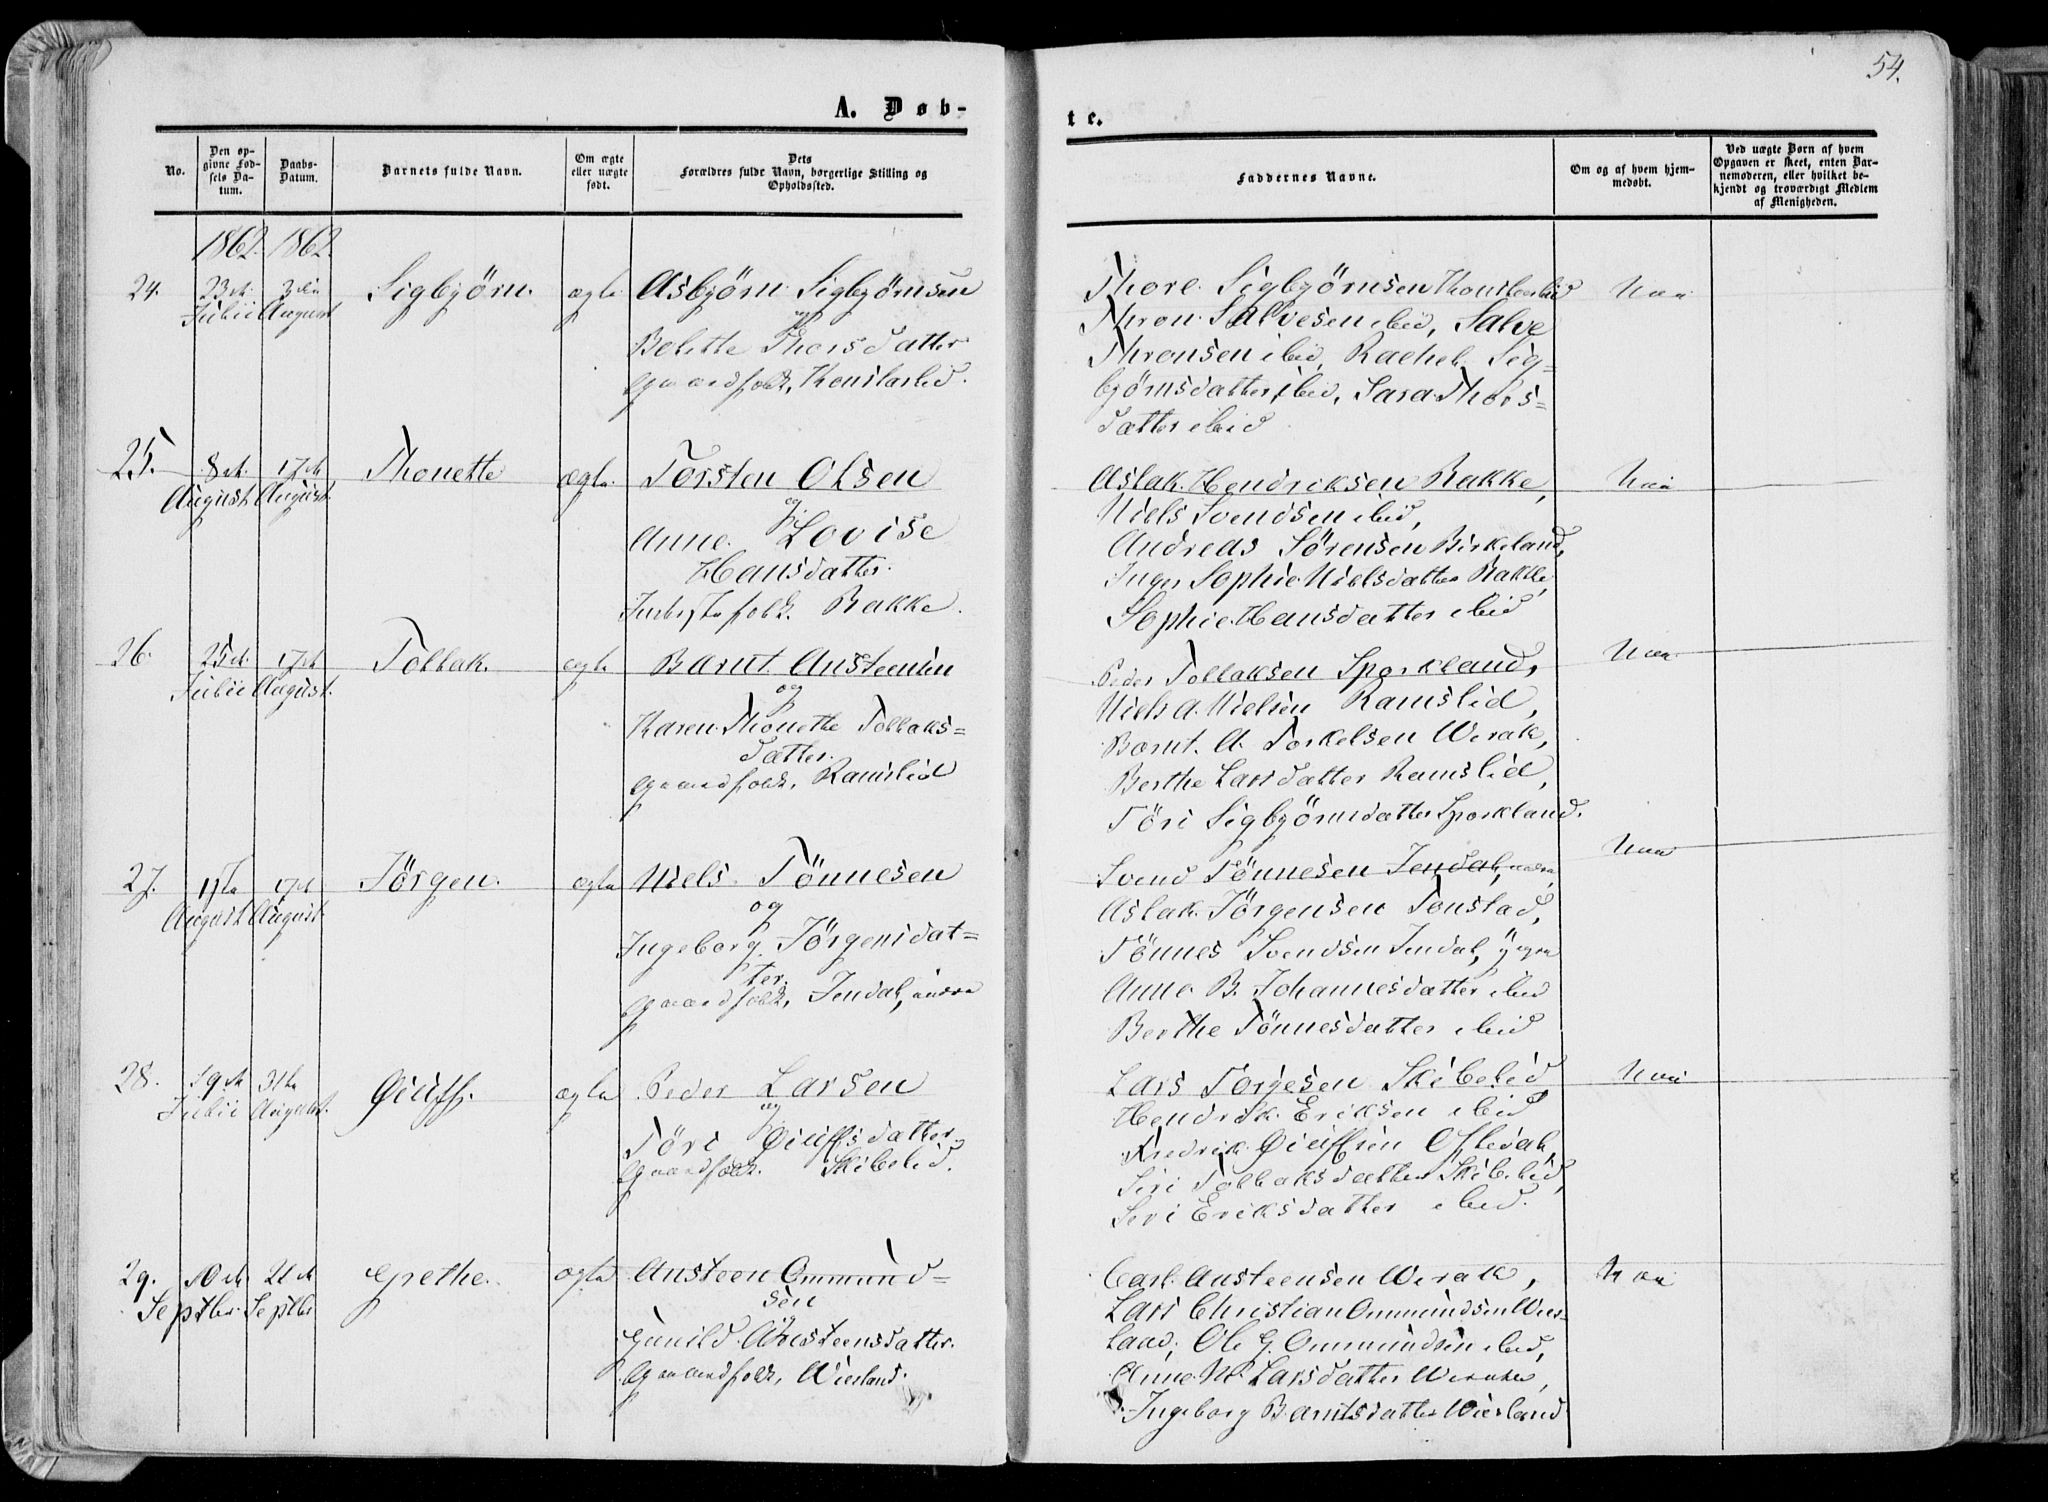 54.
A. Døb-
te.
No.
Den op-
givne Fød-
sels Da-
tum.
Daabs-
Datum.
Barnets fulde Navn.
Om ægte
eller uægte
født.
Dets
Forældres fulde Navn, borgerlige Stilling og
Opholdssted.
Faddernes Navne.
Om og af hvem hjem-
medøbt.
Ved uægte Børn af hvem
Opgaven er skeet, enten Bar-
nemoderen, eller hvilket be-
kjendt og troværdigt Medlem
af Menigheden.
1862. 1862.
24.
23de
Julii
3die
August
Sigbjörn.
ægte
Asbjörn Sigbjörnsen
og
Belette Thorsdatter
Gaardfolk,
Thore Sigbjörnsen
Thron Salvesen ibid, Salve
Thronsen ibid, Rachel Sig-
björnsdatter ibid, Sara Thors-
datter ibid
Nei
25.
8de
August
17de
August.
Thonette
ægte.
Torsten Olsen
og
Anne Lovise
Hansdatter.
Inderstfolk. Rakke.
Aslak Hendriksen Rakke,
Niels Svendsen ibid,
Andreas Sørensen Birkeland,
Inger Sophie Nielsdatter Rakke
Sophie Hansdatter ibid
Nei
26.
25de
Julii
17de
August.
Tollak.
ægte
Barnt Austeensen
og
Karen Thonette Tollaks-
datter.
Gaardfolk, Ramslid
Peder Tollaksen Sporkland,
Niels A. Nielsen Ramslid,
Barnt A. Torkelsen Werak,
Berthe Larsdatter Ramslid,
Töri Sigbjörnsdatter Sporkland.
Nei
27.
11te
August
17de
August
Jörgen.
ægte
Niels Tönnesen
og
Ingeborg Jörgensdat-
ter.
Gaardfolk, Josdal, nedre
Svend Tönnesen Josdal, nedre,
Aslak Jörgensen Tonstad,
Tönnes Svendsen Josdal, ygre
Anne B. Johannesdatter ibid
Berthe Tönnesdatter ibid
Nei
28.
19de
Julii
31te
August.
Giuff.
ægte
Peder Larsen
og
Töri Giuffsdatter
Gaardfolk. Skibelid.
Lars Torgesen Skibelid,
Hendrik Eriksen ibid
Fredrik Giuffsen Oftedal,
Siri Tollaksdatter Skibelid,
Seri Eriksdatter ibid.
Nei
29.
10de
Septbr.
21de
Septbr
Grethe.
ægte
Austeen Ommund-
sen
og
Gunild Austeensdatter.
Gaardfolk, Wiesland.
Carl Austeensen Werak,
Lars Christian Ommundsen Wies-
land, Ole G. Ommundsen ibid,
Anne M. Larsdatter
Ingeborg Barntsdatter Wiesland
Nei